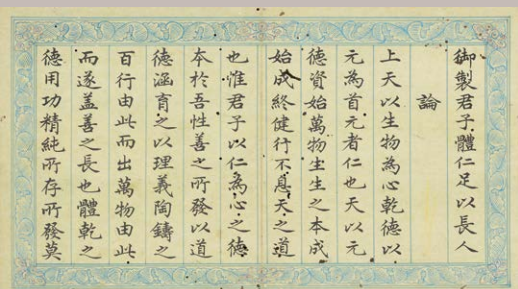 御製君子體仁足以長人
論
上天以生物為心乾德以
元為首元者仁也天以元
德資始萬物生生之本成
始成終健行不息天之道
也惟君子以仁為心之德
本於吾性善之所發以道
德涵育之以理義陶鑄之
百行由此而出萬物由此
而遂蓋善之長也體乾之
德用功精純所存所發莫